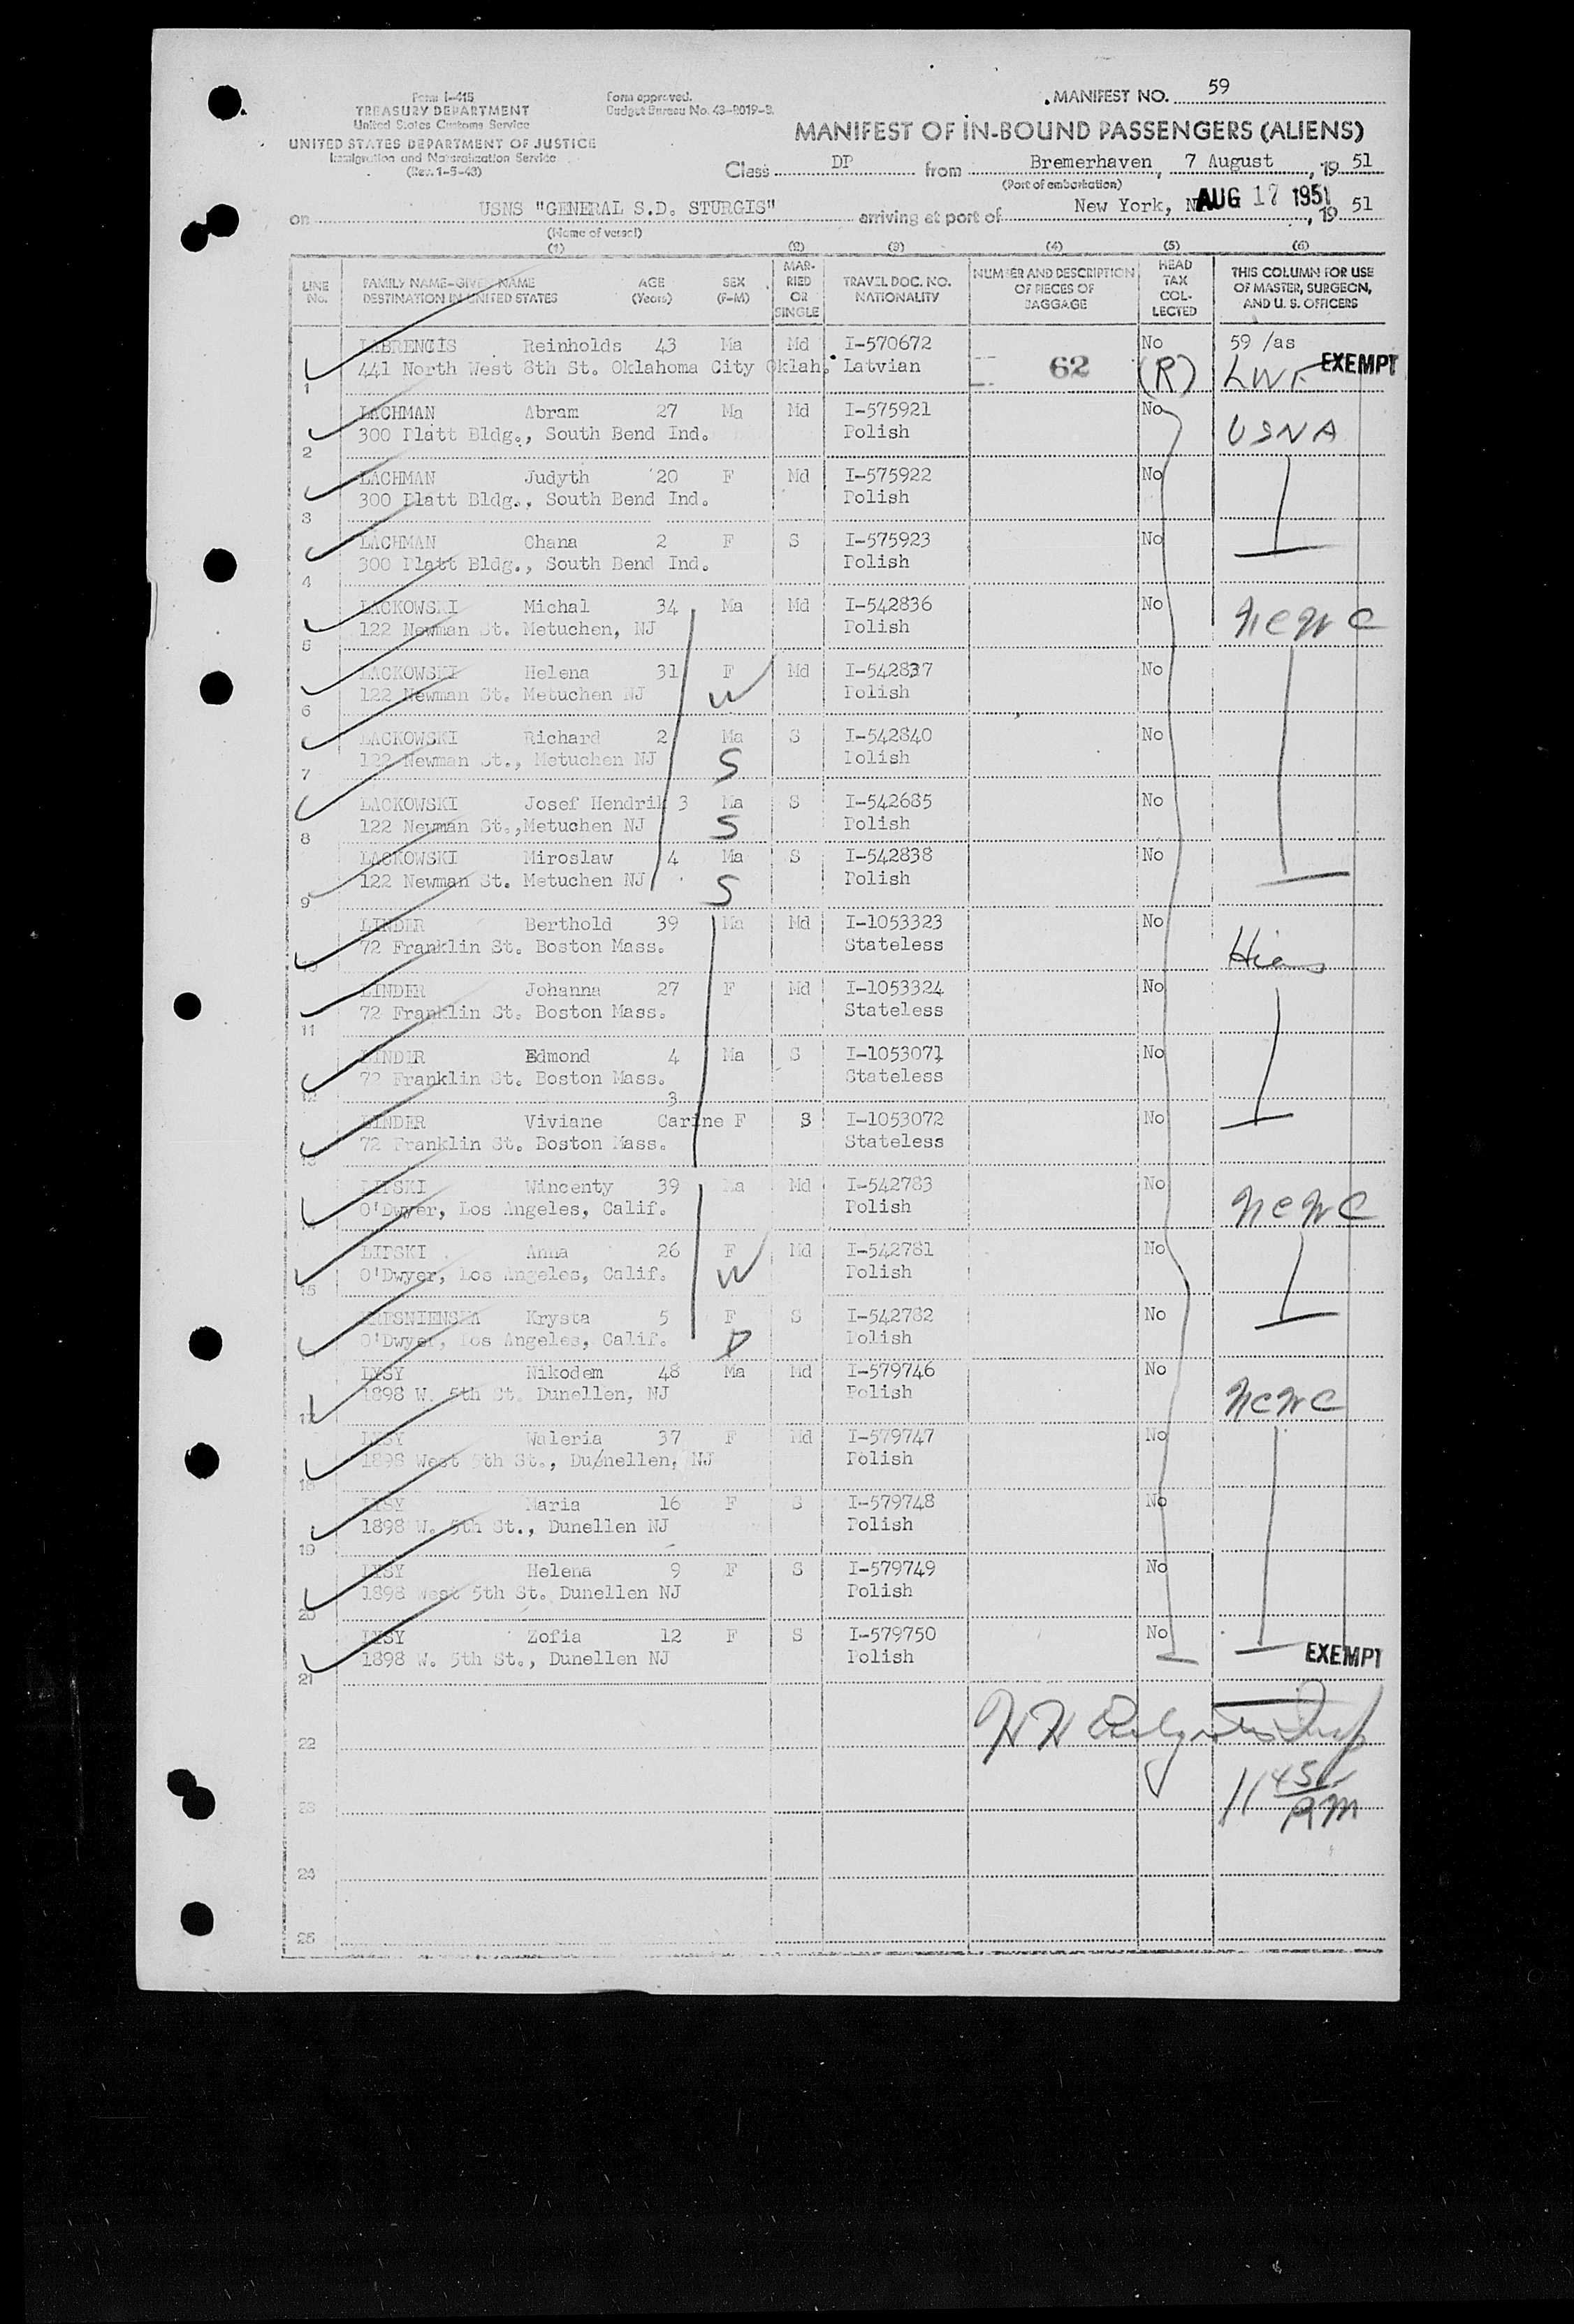 Form I-415
TREASURY DEPARTMENT
United States Customs Service
UNITED STATES DEPARTMENT OF JUSTICE
Immigration and Naturalization Service
(Rev. 1-5-43)
Form approved.
Budget Bureau No. 43-R019-3.
MANIFEST NO. 59
MANIFEST OF IN-BOUND PASSENGERS (ALIENS)
Class DP from Bremerhaven, 7 August, 19 51
(Port of embarkation)
on USNS "GENERAL S.D. STURGIS" arriving at port of New York, N AUG 17 1951, 19 51
(Name of vessel)
(1) (2) (3) (4) (5) (6)
LINE No. FAMILY NAME-GIVEN NAME DESTINATION IN UNITED STATES AGE (Years) SEX (F-M) MARRIED OR SINGLE TRAVEL DOC. NO. NATIONALITY NUMBER AND DESCRIPTION OF PIECES OF BAGGAGE HEAD TAX COLLECTED THIS COLUMN FOR USE OF MASTER, SURGEON, AND U. S. OFFICERS
LABRENCIS Reinholds 43 Ma Md I-570672 No 59 /as
1 441 North West 8th St. Oklahoma City Oklah. Latvian 62 (R) LWF EXEMPT
LACHMAN Abram 27 Ma Md I-575921 No
2 300 Platt Bldg., South Bend Ind. Polish USNA
LACHMAN Judyth 20 F Md I-575922 No
3 300 Platt Bldg., South Bend Ind. Polish
LACHMAN Chana 2 F S I-575923 No
4 300 Platt Bldg., South Bend Ind. Polish
LACKOWSKI Michal 34 Ma Md I-542836 No
5 122 Newman St. Metuchen, NJ Polish NCWC
LACKOWSKI Helena 31 F Md I-542837 No
6 122 Newman St. Metuchen NJ W Polish
LACKOWSKI Richard 2 Ma S I-542840 No
7 122 Newman St., Metuchen NJ S Polish
LACKOWSKI Josef Hendrik 3 Ma S I-542685 No
8 122 Newman St.,Metuchen NJ S Polish
LACKOWSKI Miroslaw 4 Ma S I-542838 No
9 122 Newman St. Metuchen NJ S Polish
LINDER Berthold 39 Ma Md I-1053323 No
10 72 Franklin St. Boston Mass. Stateless Hias
LINDER Johanna 27 F Md I-1053324 No
11 72 Franklin St. Boston Mass. Stateless
LINDER Edmond 4 Ma S I-1053071 No
12 72 Franklin St. Boston Mass. Stateless
3
LINDER Viviane Carine F S I-1053072 No
13 72 Franklin St. Boston Mass. Stateless
LIPSKI Wincenty 39 Ma Md I-542783 No
14 O'Dwyer, Los Angeles, Calif. Polish NCWC
LIPSKI Anna 26 F Md I-542781 No
15 O'Dwyer, Los Angeles, Calif. W Polish
Krysta 5 F S I-542782 No
O'Dwyer, Los Angeles, Calif. D Polish
LYSY Nikodem 48 Ma Md I-579746 No
17 1898 W. 5th St. Dunellen, NJ Polish NCWC
LYSY Waleria 37 F Md I-579747 No
18 1898 West 5th St., Du/nellen, NJ Polish
LYSY Maria 16 F S I-579748 No
19 1898 W. 5th St., Dunellen NJ Polish
LYSY Helena 9 F S I-579749 No
20 1898 West 5th St. Dunellen NJ Polish
LYSY Zofia 12 F S I-579750 No
21 1898 W. 5th St., Dunellen NJ Polish EXEMPT
22
23 11 45 AM
24
25